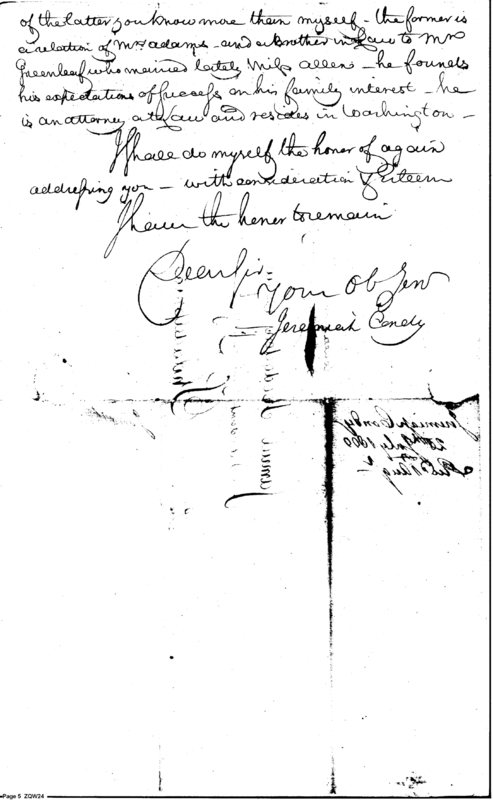 of the latter you know more than myself - the former is
a relation of Mrs adams - and a brother in Law to Mr
Greenleaf who married lately Miss allen - he founds
his expectations of success on his family interest - he
is an attorney at Law and resides in Washington -
I shall do myself the honor of again
addressing you - with consideration & Esteem
I have the honor to remain
Dear Sir
Your Ob Serv
Jeremiah Condy
Jeremiah Condy
28 July 1800
Page 5 ZQW24